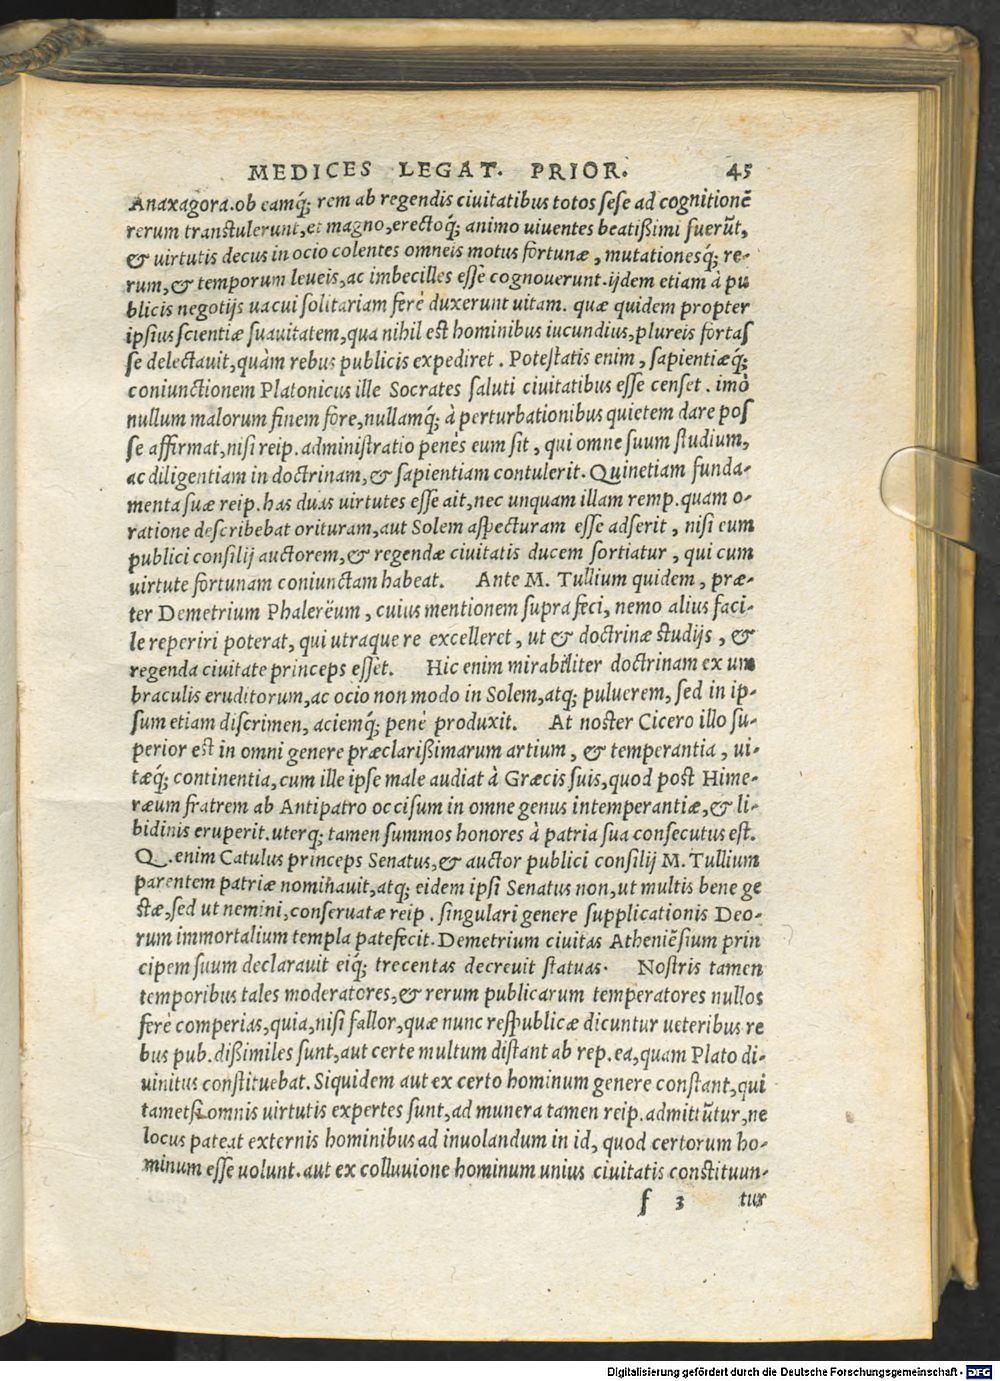 MEDICES LEGAT. PRIOR. 45
Anaxagora.ob eamq́; rem ab regendis ciuitatibus totos sese ad cognitionē
rerum transtulerunt,et magno,erectoq́; animo uiuentes beatißimi fuerūt,
& uirtutis decus in ocio colentes omneis motus fortunæ, mutationesq́; re-
rum,& temporum leueis,ac imbecilles esse cognouerunt.ijdem etiam à pu
blicis negotijs uacui solitariam ferè duxerunt uitam. quæ quidem propter
ipsius scientiæ suauitatem,qua nihil est hominibus iucundius,plureis fortas
se delectauit,quàm rebus publicis expediret. Potestatis enim, sapientiæq́;
coniunctionem Platonicus ille Socrates saluti ciuitatibus esse censet. imò
nullum malorum finem fore,nullamq́; à perturbationibus quietem dare pos
se affirmat,nisi reip. administratio penès eum sit, qui omne suum studium,
ac diligentiam in doctrinam,& sapientiam contulerit. Quinetiam funda-
menta suæ reip. has duas uirtutes esse ait,nec unquam illam remp. quam o-
ratione describebat orituram,aut Solem aspecturam esse adserit, nisi eum
publici consilij auctorem,& regendæ ciuitatis ducem sortiatur, qui cum
uirtute fortunam coniunctam habeat. Ante M. Tullium quidem, præ-
ter Demetrium Phalerëum, cuius mentionem supra feci, nemo alius faci-
le reperiri poterat, qui utraque re excelleret, ut & doctrinæ studijs, &
regenda ciuitate princeps esset. Hic enim mirabiliter doctrinam ex um
braculis eruditorum,ac ocio non modo in Solem,atq; puluerem, sed in ip-
sum etiam discrimen, aciemq́; penè produxit. At noster Cicero illo su-
perior est in omni genere præclarißimarum artium, & temperantia, ui-
tæq́; continentia, cum ille ipse male audiat à Græcis suis,quod post Hime-
ræum fratrem ab Antipatro occisum in omne genus intemperantiæ,& li-
bidinis eruperit. uterq; tamen summos honores à patria sua consecutus est.
Q. enim Catulus princeps Senatus,& auctor publici consilij M. Tullium
parentem patriæ nominauit,atq; eidem ipsi Senatus non, ut multis bene ge
stæ,sed ut nemini, conseruatæ reip. singulari genere supplicationis Deo-
rum immortalium templa patefecit. Demetrium ciuitas Atheniēsium prin
cipem suum declarauit eiq́; trecentas decreuit statuas. Nostris tamen
temporibus tales moderatores,& rerum publicarum temperatores nullos
ferè comperias, quia,nisi fallor,quæ nunc respublicæ dicuntur ueteribus re
bus pub. dißimiles sunt,aut certe multum distant ab rep. ea,quam Plato di-
uinitus constituebat. Siquidem aut ex certo hominum genere constant,qui
tametsi omnis uirtutis expertes sunt,ad munera tamen reip. admittūtur,ne
locus pateat externis hominibus ad inuolandum in id, quod certorum ho-
minum esse uolunt. aut ex colluuione hominum unius ciuitatis constituun-
f 3 tur
Digitalisierung gefördert durch die Deutsche Forschungsgemeinschaft - DFG